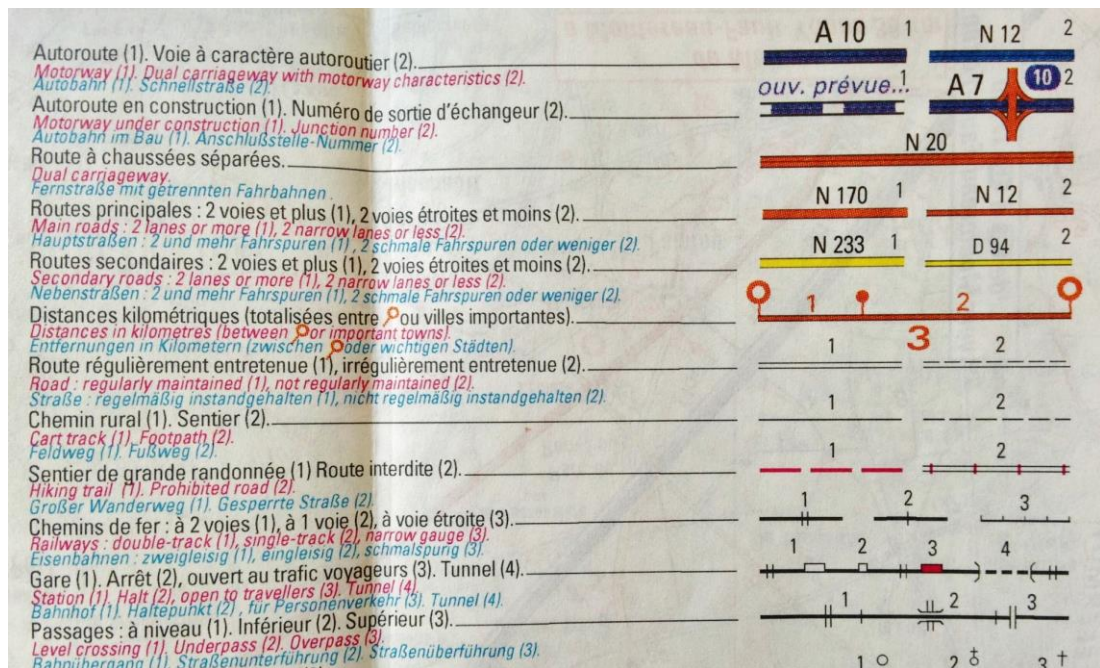 Autoroute (1). Voie à caractère autoroutier (2).
Motorway (1). Dual carriageway with motorway characteristics (2).
Autobahn (1). Schnellstraße (2).
A 10 1 N 12 2
Autoroute en construction (1). Numéro de sortie d'échangeur (2).
Motorway under construction (1). Junction number (2).
Autobahn im Bau (1). Anschlußstelle-Nummer (2).
ouv. prévue... 1 A 7 10 2
Route à chaussées séparées.
Dual carriageway.
Fernstraße mit getrennten Fahrbahnen.
N 20
Routes principales : 2 voies et plus (1), 2 voies étroites et moins (2).
Main roads : 2 lanes or more (1), 2 narrow lanes or less (2).
Hauptstraßen : 2 und mehr Fahrspuren (1), 2 schmale Fahrspuren oder weniger (2).
N 170 1 N 12 2
Routes secondaires : 2 voies et plus (1), 2 voies étroites et moins (2).
Secondary roads : 2 lanes or more (1), 2 narrow lanes or less (2).
Nebenstraßen : 2 und mehr Fahrspuren (1), 2 schmale Fahrspuren oder weniger (2).
N 233 1 D 94 2
Distances kilométriques (totalisées entre ou villes importantes).
Distances in kilometres (between or important towns).
Entfernungen in Kilometern (zwischen oder wichtigen Städten).
1 2
3
Route régulièrement entretenue (1), irrégulièrement entretenue (2).
Road : regularly maintained (1), not regularly maintained (2).
Straße : regelmäßig instandgehalten (1), nicht regelmäßig instandgehalten (2).
1 2
Chemin rural (1). Sentier (2).
Cart track (1). Footpath (2).
Feldweg (1). Fußweg (2).
1 2
Sentier de grande randonnée (1) Route interdite (2).
Hiking trail (1). Prohibited road (2).
Großer Wanderweg (1). Gesperrte Straße (2).
1 2
Chemins de fer : à 2 voies (1), à 1 voie (2), à voie étroite (3).
Railways : double-track (1), single-track (2), narrow gauge (3).
Eisenbahnen : zweigleisig (1), eingleisig (2), schmalspurig (3).
1 2 3
Gare (1). Arrêt (2), ouvert au trafic voyageurs (3). Tunnel (4).
Station (1). Halt (2), open to travellers (3). Tunnel (4).
Bahnhof (1). Haltepunkt (2), für Personenverkehr (3). Tunnel (4).
1 2 3 4
Passages : à niveau (1). Inférieur (2). Supérieur (3).
Level crossing (1). Underpass (2). Overpass (3).
Bahnübergang (1). Straßenunterführung (2). Straßenüberführung (3).
1 2 3
1 2 3